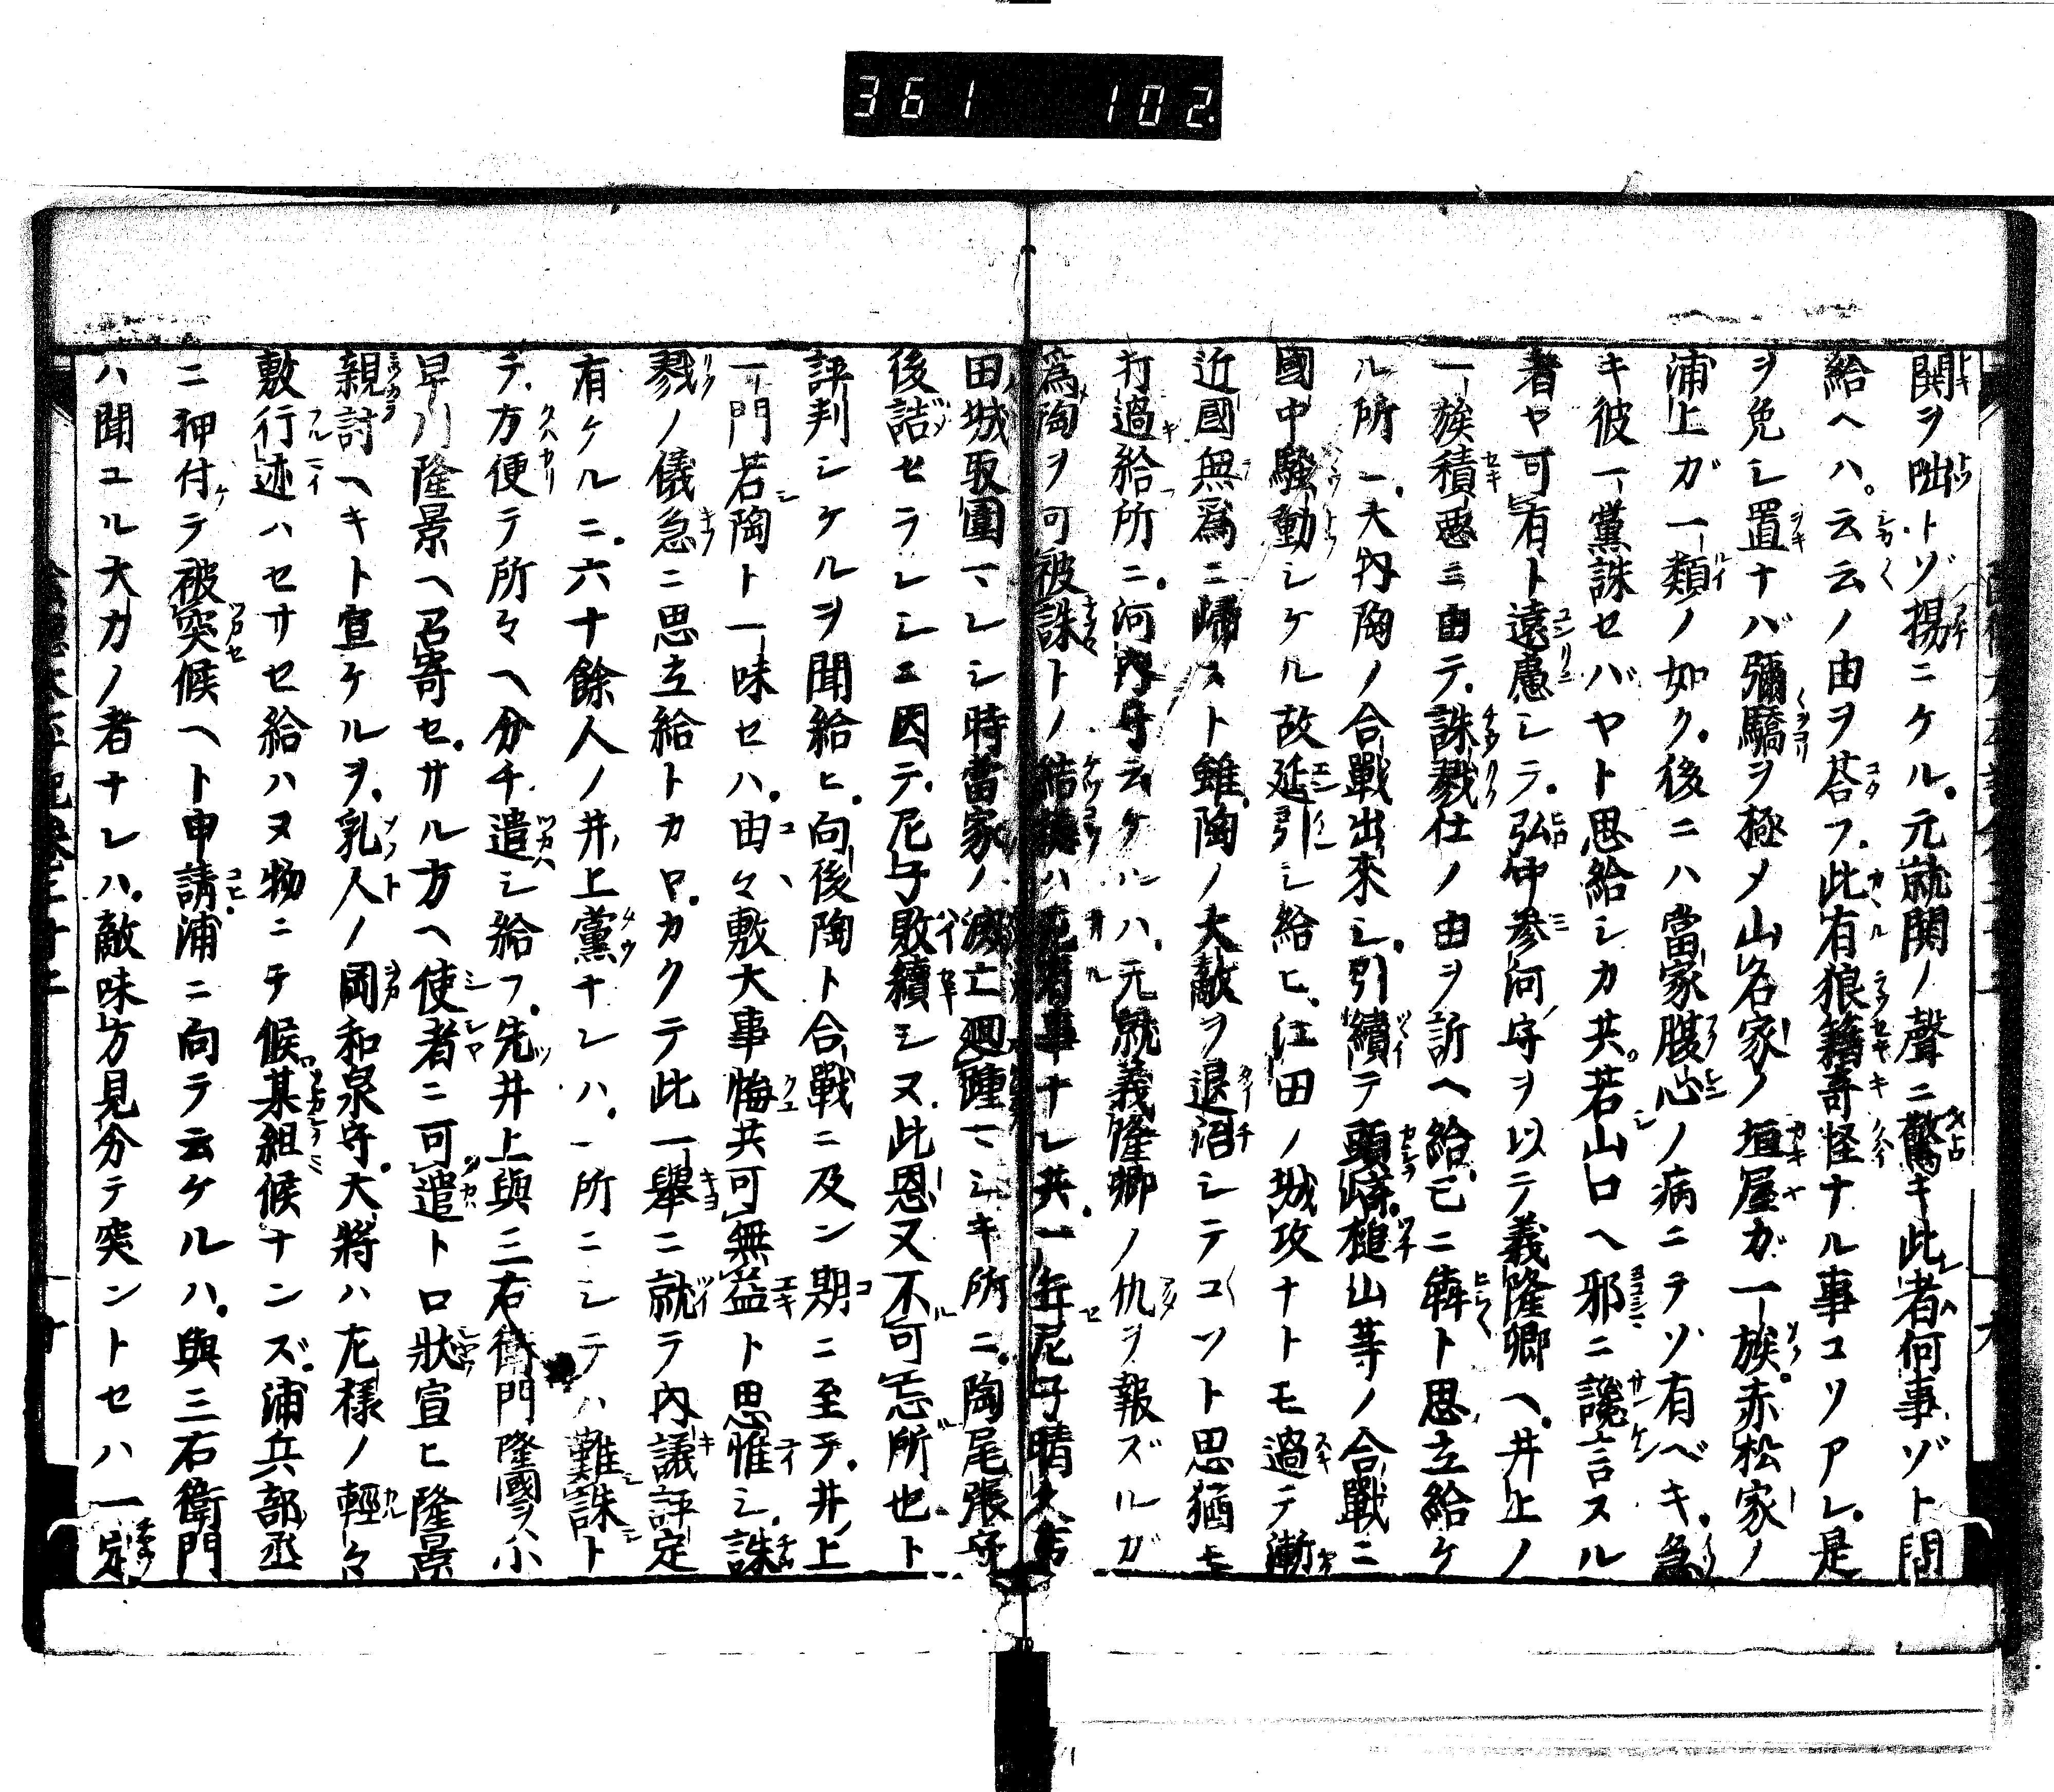 361 102.
閧ヲ咄トゾ揚ニケル元就閧ノ聲ニ驚キ此者何事ゾト問
給ヘハ云云ノ由ヲ荅フ此有狼籍奇怪ナル事コソアレ是
ヲ免シ置ナバ彌驕ヲ極メ山名家ノ垣屋ガ一族赤松家ノ
浦上ガ一類ノ如ク後ニハ當家腹心ノ病ニテソ有ベキ急
キ彼一黨誅セバヤト思給シカ共若山口ヘ邪ニ讒言スル
者ヤ可有ト遠慮シテ弘中参河守ヲ以テ義隆卿ヘ井上ノ
一族積悪ニ由テ誅戮仕ノ由ヲ訴ヘ給已ニ犇ト思立給ケ
ル所ニ大内陶ノ合戰出來シ引續テ頭﨑槌山等ノ合戰ニ
國中騒動シケル故延引シ給ヒ江田ノ城攻ナトモ過テ漸
近國無爲ニ歸スト雖陶ノ大敵ヲ退治シテコソト思猶モ
打過給所ニ河内守云ケルハ元就義隆卿ノ仇ヲ報ズルガ
爲陶ヲ可被誅トノ結構ハ尤有事ナレ共一年尼子晴久吉
田城取圍レシ時當家ノ滅亡廻踵シキ所ニ陶尾張守
後詰セラレシニ因テ尼子敗績シヌ此恩又不可忘所也ト
評判シケルヲ聞給ヒ向後陶ト合戰ニ及ン期ニ至テ井上
一門若陶ト一味セハ由々敷大事悔共可無益ト思惟シ誅
戮ノ儀急ニ思立給トカロカクテ此一擧ニ就テ内議評定
有ケルニ六十餘人ノ井上黨ナレハ一所ニシテハ難誅ト
テ方便テ所々ヘ分チ遣シ給フ先井上與三右衛門隆國ヲ小
早川隆景ヘ召寄セサル方ヘ使者ニ可遣ト口狀宣ヒ隆景
親討ヘキト宣ケルヲ乳人ノ岡和泉守大將ハ左樣ノ輕々
敷行迹ハセサセ給ハヌ物ニテ候某組候ナンズ浦兵部丞
ニ押付テ被突候ヘト申請浦ニ向テ云ケルハ與三右衛門
ハ聞ユル大力ノ者ナレハ敵味方見分テ突ントセハ一定